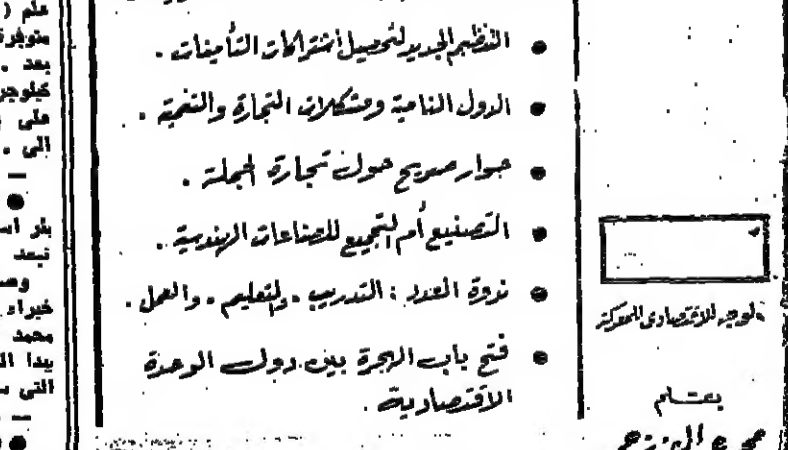 التنظيم الجديد لتحصيل اشتراكات التأمينات .
الدول النامية ومشكلات التجارة والتنمية .
حوار صريح حول تجارة الجملة .
التصنيع أم التجميع للصناعات الهندسية .
ندوة العدد : التدريب . والتعليم . والعمل .
فتح باب الهجرة بين دول الوحدة
الاقتصادية .
الوجه الاقتصادى للمعركة
بقلم
علم (
متوفرة
بعد .
كيلوجر
على
الى .
بئر
تبعد
خبراء
محمد
يبدا
التى